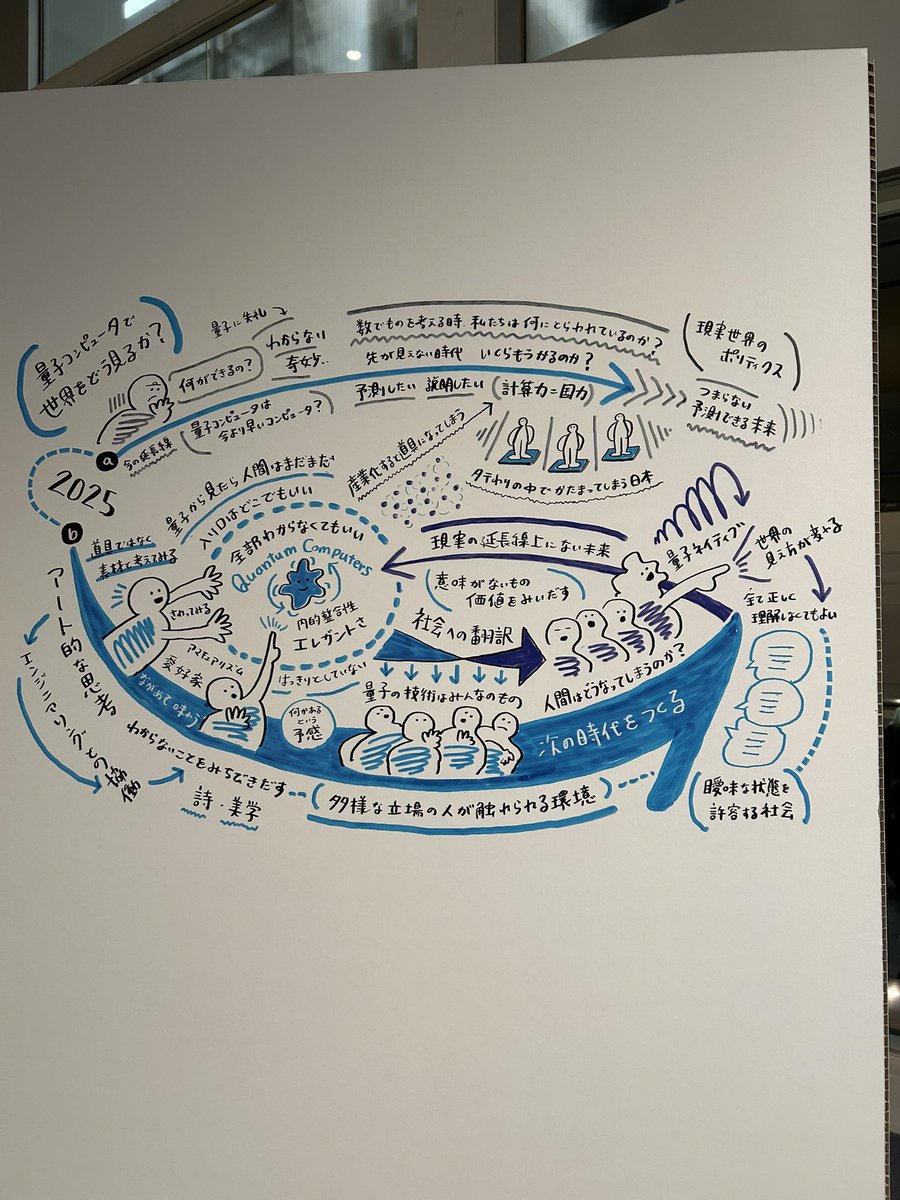 量子コンピュータで
世界をどう見るか?
何ができるの?
量子に失礼
わからない
奇妙..
数でものを考える時、私たちは何にとらわれているのか?
先が見えない時代 いくらもうかるのか?
予測したい 説明したい (計算力=国力)
現実世界の
ポリティクス
つまらない
予測できる未来
a
今の延長線
量子コンピュータは
今より早いコンピュータ?
産業化すると道具になってしまう
タテわりの中でかたまってしまう日本
2025
b
量子から見たら人間はまだまだ
入り口はどこでもいい
全部わからなくてもいい
Quantum Computers
内的整合性
エレガントさ
はっきりとしていない
道具ではなく
素材と考えてみる
さわってみる
アマチュアリズム
愛好家
ながめて味わう
何かある
という
予感
アート的な思考
エンジニアリングとの協働
わからないことをみちびきだす
詩・美学
現実の延長線上にない未来
意味がないもの
価値をみいだす
社会への翻訳
量子の技術はみんなのもの
人間はどうなってしまうのか?
量子ネイティブ
世界の
見え方が変わる
全て正しく
理解しなくてもよい
次の時代をつくる
多様な立場の人が触れられる環境
曖昧な状態を
許容する社会